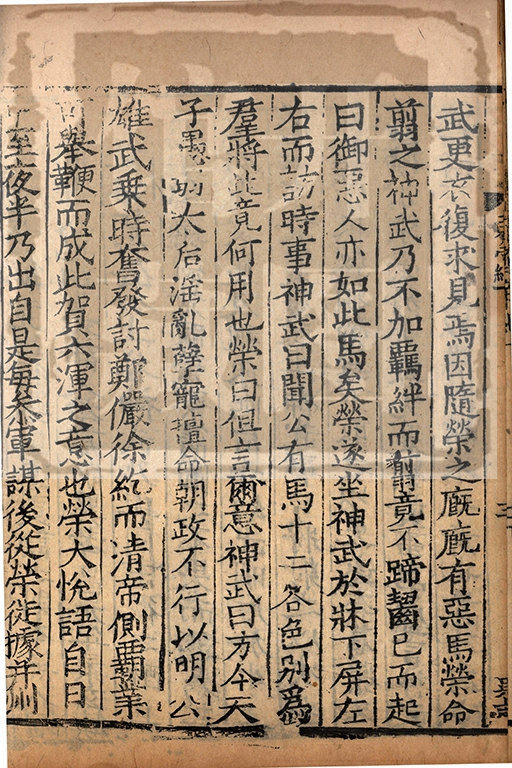 武更衣復求見焉因隨榮之廐廐有惡馬榮命
翦之神武乃不加羈絆而翦竟不蹄齧已而起
曰御惡人亦如此馬矣榮遂坐神武於牀下屏左
右而訪時事神武曰聞公有馬十二谷色别爲
羣將此竟何用也榮曰但言爾意神武曰方今天
子愚弱太后淫亂孽寵擅命朝政不行以明公
雄武乗時奮發討鄭儼徐紇而清帝側霸業
可舉鞭而成此賀六渾之意也榮大悅語自日
中至夜半乃出自是每叅軍謀後從榮徙據并州